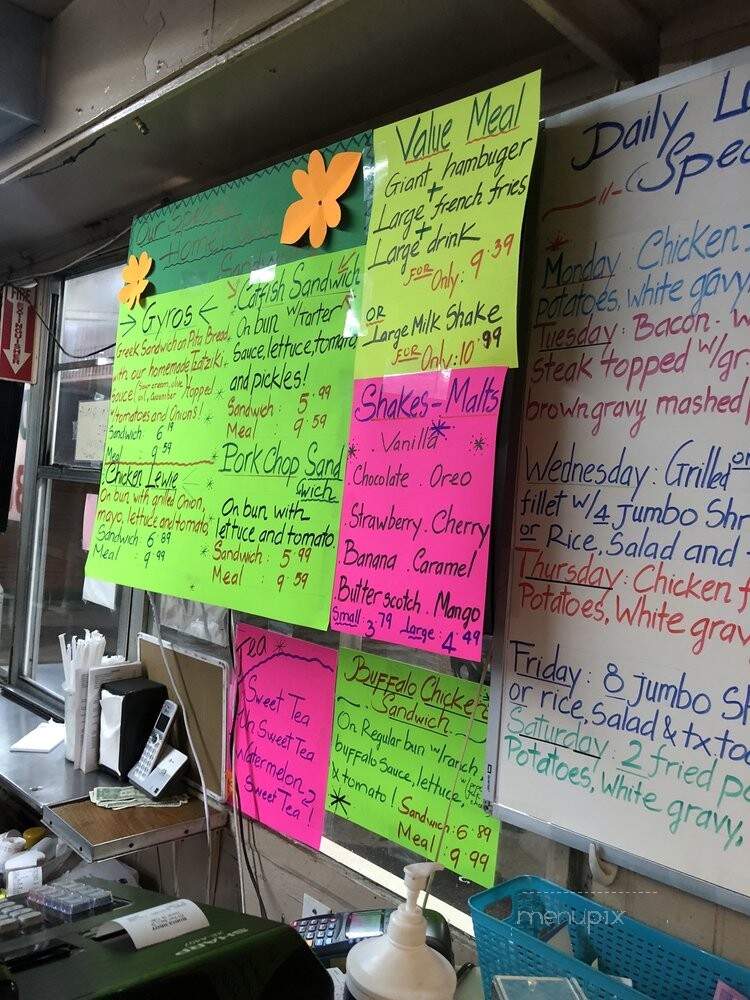 Our Special
Homemade
Sandwich
→ Gyros ←
Greek Sandwich on Pita Bread,
with our homemade Tatziki
sauce (Sour cream, olive
oil, Cucumber) topped
w/tomatoes and Onions!
Sandwich: 6 19
Meal : 9 59
Chicken Lewie
On bun with grilled Onion,
mayo, lettuce and tomato
Sandwich: 6 89
Meal : 9 99
Catfish Sandwich
On bun w/Tarter
Sauce, lettuce, tomato
and pickles!
Sandwich : 5 99
Meal : 9 59
Pork Chop Sand
wich
On bun with
lettuce and tomato.
Sandwich : 5 99
Meal : 9 59
Value Meal
Giant hambuger
+
Large french fries
+
Large drink
FOR Only: 9.39
OR
Large Milk Shake
FOR Only: 10.99
Shakes - Malts
. Vanilla
Chocolate . Oreo
. Strawberry . Cherry
Banana . Caramel
Butterscotch . Mango
Small 3 79 Large : 4 49
Tea
Sweet Tea
Un Sweet Tea
Watermelon
Sweet Tea !
Buffalo Chicken
Sandwich
On Regular bun w/ranch,
buffalo sauce, lettuce,
& tomato !
Sandwich : 6.89
Meal : 9.99
Daily L
Spec
Monday : Chicken
potatoes, white gravy
Tuesday : Bacon - w
steak topped w/gr
brown gravy mashed
Wednesday : Grilled or
fillet w/4 Jumbo Shr
or Rice, Salad and
Thursday : Chicken f
Potatoes, White grav
Friday : 8 jumbo Sh
or rice, Salad & tx toa
Saturday : 2 fried po
Potatoes, white gravy,
FIRE
SHARP
menupix